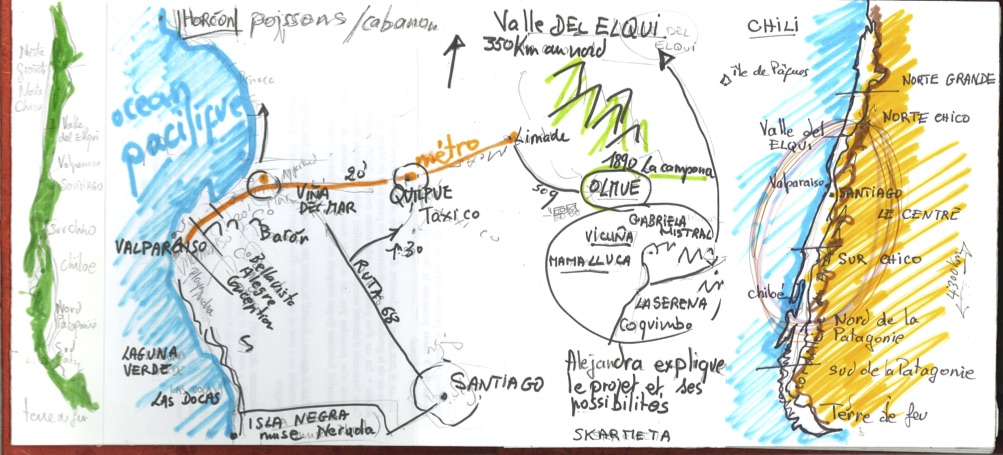 Norte
Grande
Norte
Chico
Valle
del Elqui
Valparaiso
Santiago
Sur Chico
Chiloe
Nord
Patagonie
Sud
terre de feu
HORCÓN poissons / cabanon
océan
pacifique
métro
Limade
20'
VIÑA
DEL MAR
QUILPUE
Taxico
1.30
VALPARAISO
Barón
Bellavista
Alegre
Conception
RUTA 68
S
LAGUNA
VERDE
LAS DOCAS
ISLA NEGRA
muse Neruda
SANTIAGO
Valle DEL ELQUI
350 Km au nord
DEL
ELQUI
1890 La campana
OLMUÉ
509
GABRIELA
MISTRAL
VICUÑA
MAMALLUCA
LA SERENA
Coquimbo
Alejandra explique
le projet et ses
possibilités
SKARMETA
CHILI
île de Pâques
NORTE GRANDE
NORTE CHICO
Valle del
ELQUI
Valparaiso
SANTIAGO
LE CENTRE
SUR CHICO
Chiloé
4300 km
Nord de la
Patagonie
Sud de la Patagonie
Terre de feu